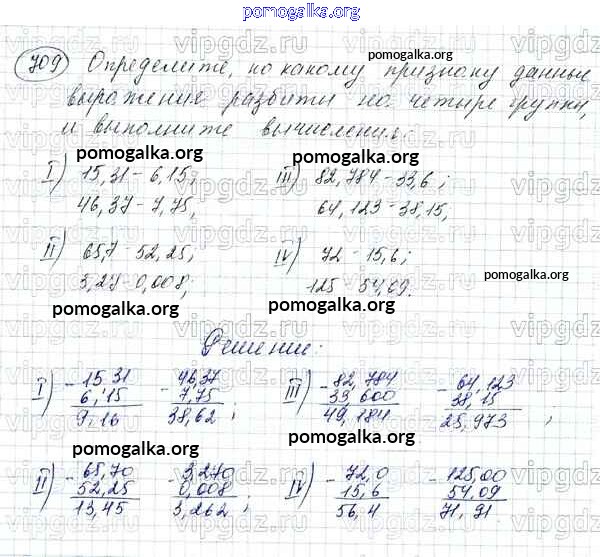 pomogalka.org
709 Определите, по какому признаку данные
pomogalka.org
выражение разбиты на четыре группы,
и выполните вычисления:
pomogalka.org
I) 15,31 - 6,15; III) 82,784 - 33,6;
46,37 - 7,75, 64,123 - 38,15,
pomogalka.org pomogalka.org
II) 65,7 - 52,25; IV) 72 - 15,6;
3,27 - 0,008; 125 - 54,09.
pomogalka.org pomogalka.org
Решение:
I) - 15,31 - 46,37 III) - 82,784 - 64,123
6,15 7,75 33,600 38,15
9,16 38,62 ; 49,184 25,973 ,
pomogalka.org pomogalka.org
II) - 65,70 - 3,270 IV) - 72,0 - 125,00
52,25 0,008 15,6 54,09
13,45 3,262 ; 56,4 71,91.
pomogalka.org